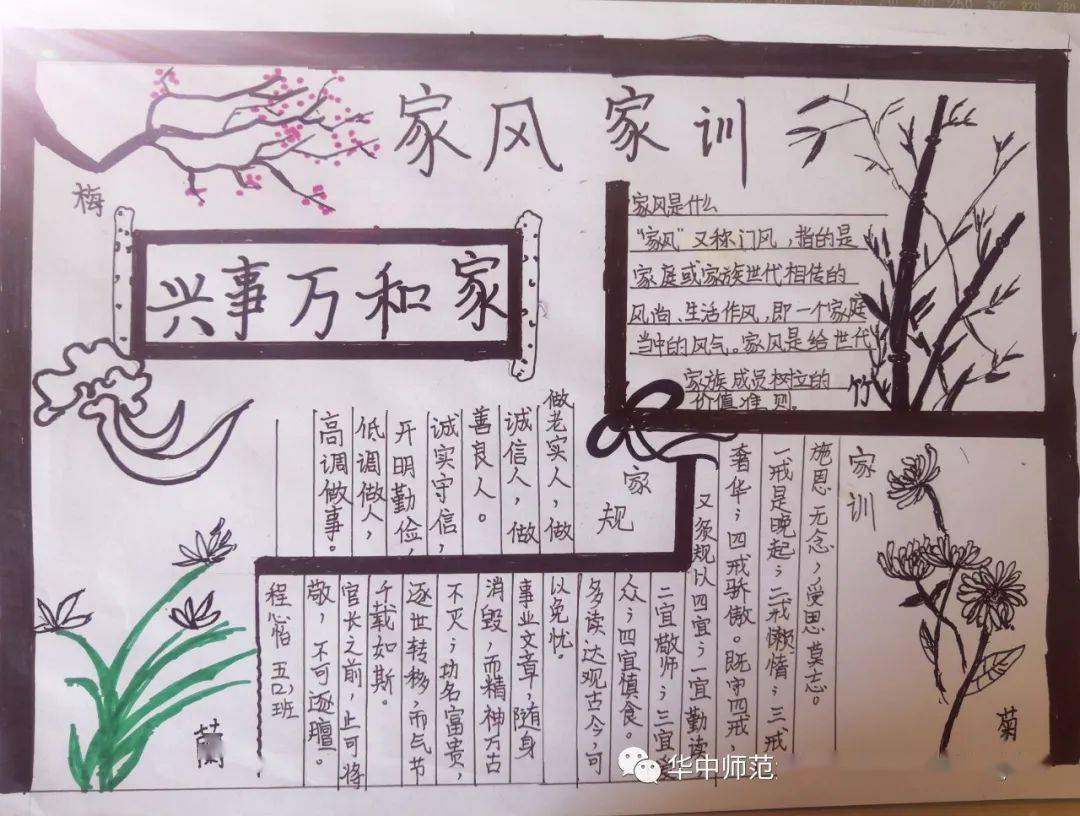 家风家训
梅
兴事万和家
家风是什么
“家风”又称门风，指的是
家庭或家族世代相传的
风尚、生活作风，即一个家庭
当中的风气。家风是给世代
家族成员树立的
价值准则。
竹
家规
做老实人，做
诚信人，做
善良人。
诚实守信，
开明勤俭，
低调做人，
高调做事。
家训
施恩无念，受恩莫忘。
一戒是晚起；二戒懒惰；三戒
奢华；四戒骄傲。既守四戒，
又须规以四宜；一宜勤读
二宜敬师；三宜
众；四宜慎食。
多读达观古今，可
以免忧。
事业文章，随身
消毁，而精神万古
不灭；功名富贵，
逐世转移，而气节
千载如斯。
官长之前，止可将
敬，不可逐壇。
程心怡 五(2)班
兰
菊
华中师范